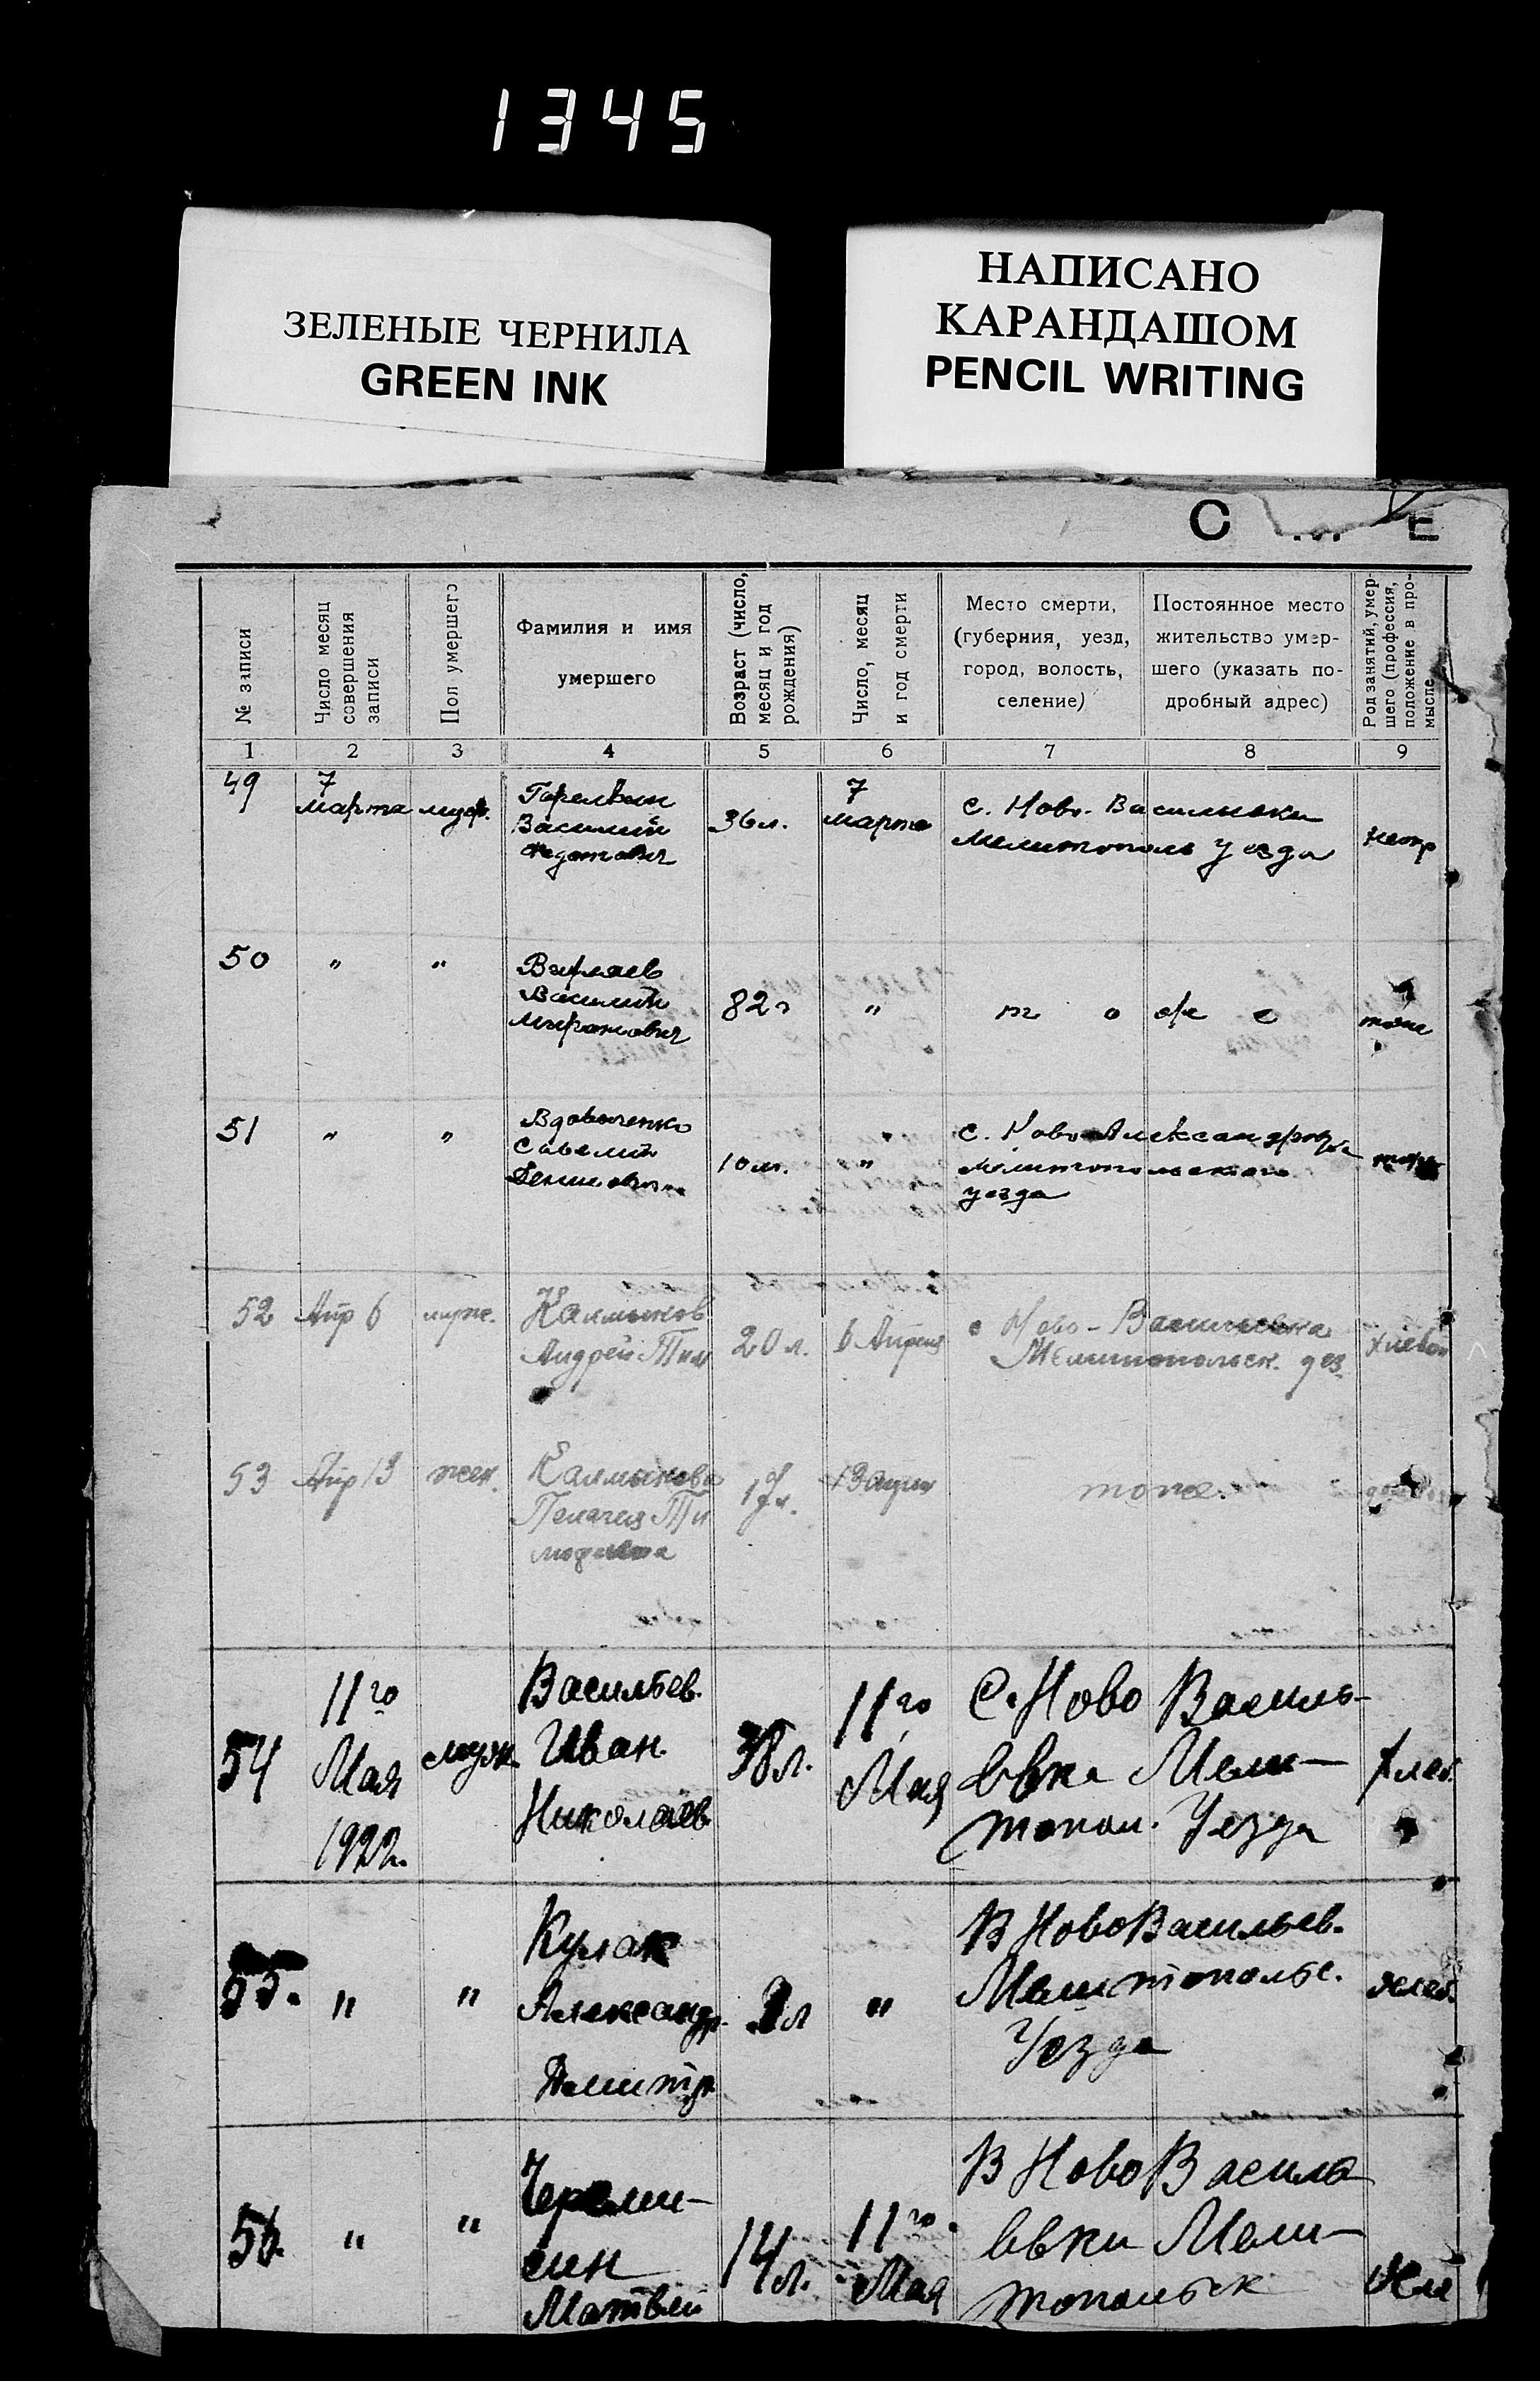 1345
ЗЕЛЕНЫЕ ЧЕРНИЛА
GREEN INK
НАПИСАНО
КАРАНДАШОМ
PENCIL WRITING
С Е
№ записи
Число месяц
совершения
записи
Пол умершего
Фамилия и имя
умершего
Возраст (число,
месяц и год
рождения)
Число, месяц
и год смерти
Место смерти,
(губерния, уезд,
город, волость,
селение)
Постоянное место
жительство умер-
шего (указать по-
дробный адрес)
Род занятий, умер-
шего (профессия,
положение в про-
мысле
1 2 3 4 5 6 7 8 9
49
7
марта
муж.
Василий
Федотович
36 л.
7
марта
с. Ново-Васильевки
Мелитополь уезда
50
"
"
Василий
Миронович
82 г
"
т о ж е
тоже
51
"
"
Вдовиченко
Савелий
10 м.
"
с. Ново Александровка
Мелитопольского
уезда
52
Апр 6
муж.
Калмыков
Андрей Тим
20 л.
6 Апреля
с Ново-Васильевка
Мелитопольск. уез.
53
Апр 13
жен.
Калмыкова
Пелагия Ти
мофеевна
17 л.
13 апрел
тоже.
54
11го
Мая
1922.
муж.
Васильев.
Иван
Николаев
38 л.
11го
Мая
С. Ново Василь-
евка Мели-
топол. Уезда
хлеб.
55.
"
"
Кулак
Александр.
Дмитр
"
В Ново Васильев.
Мелитопольс.
Уезда
хлеб.
56.
"
"
Череми-
син
Матвей
14 л.
11го
Мая
В Ново Василь
евки Мели-
топольск
хле